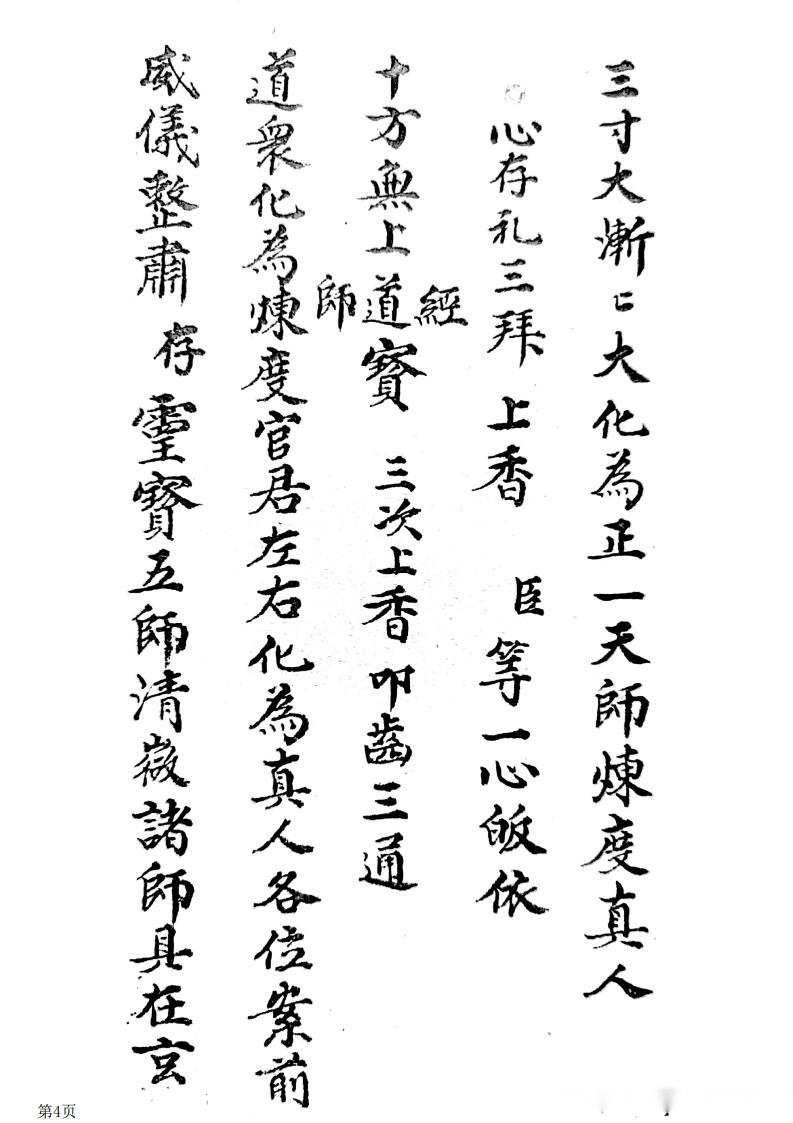 三寸大漸〻大化為正一天師煉度真人
心存礼三拜 上香 臣等一心皈依
十方無上經道師寳 三次上香叩齒三通
道衆化為煉度官君左右化為真人各位案前
威儀整肅 存靈寳五師清微諸師具在玄
第4页